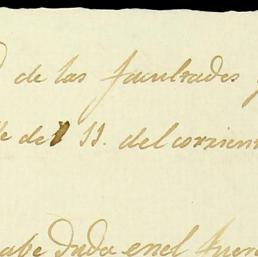 de las facultades
de 11. del corrient
abe duda en el fuero